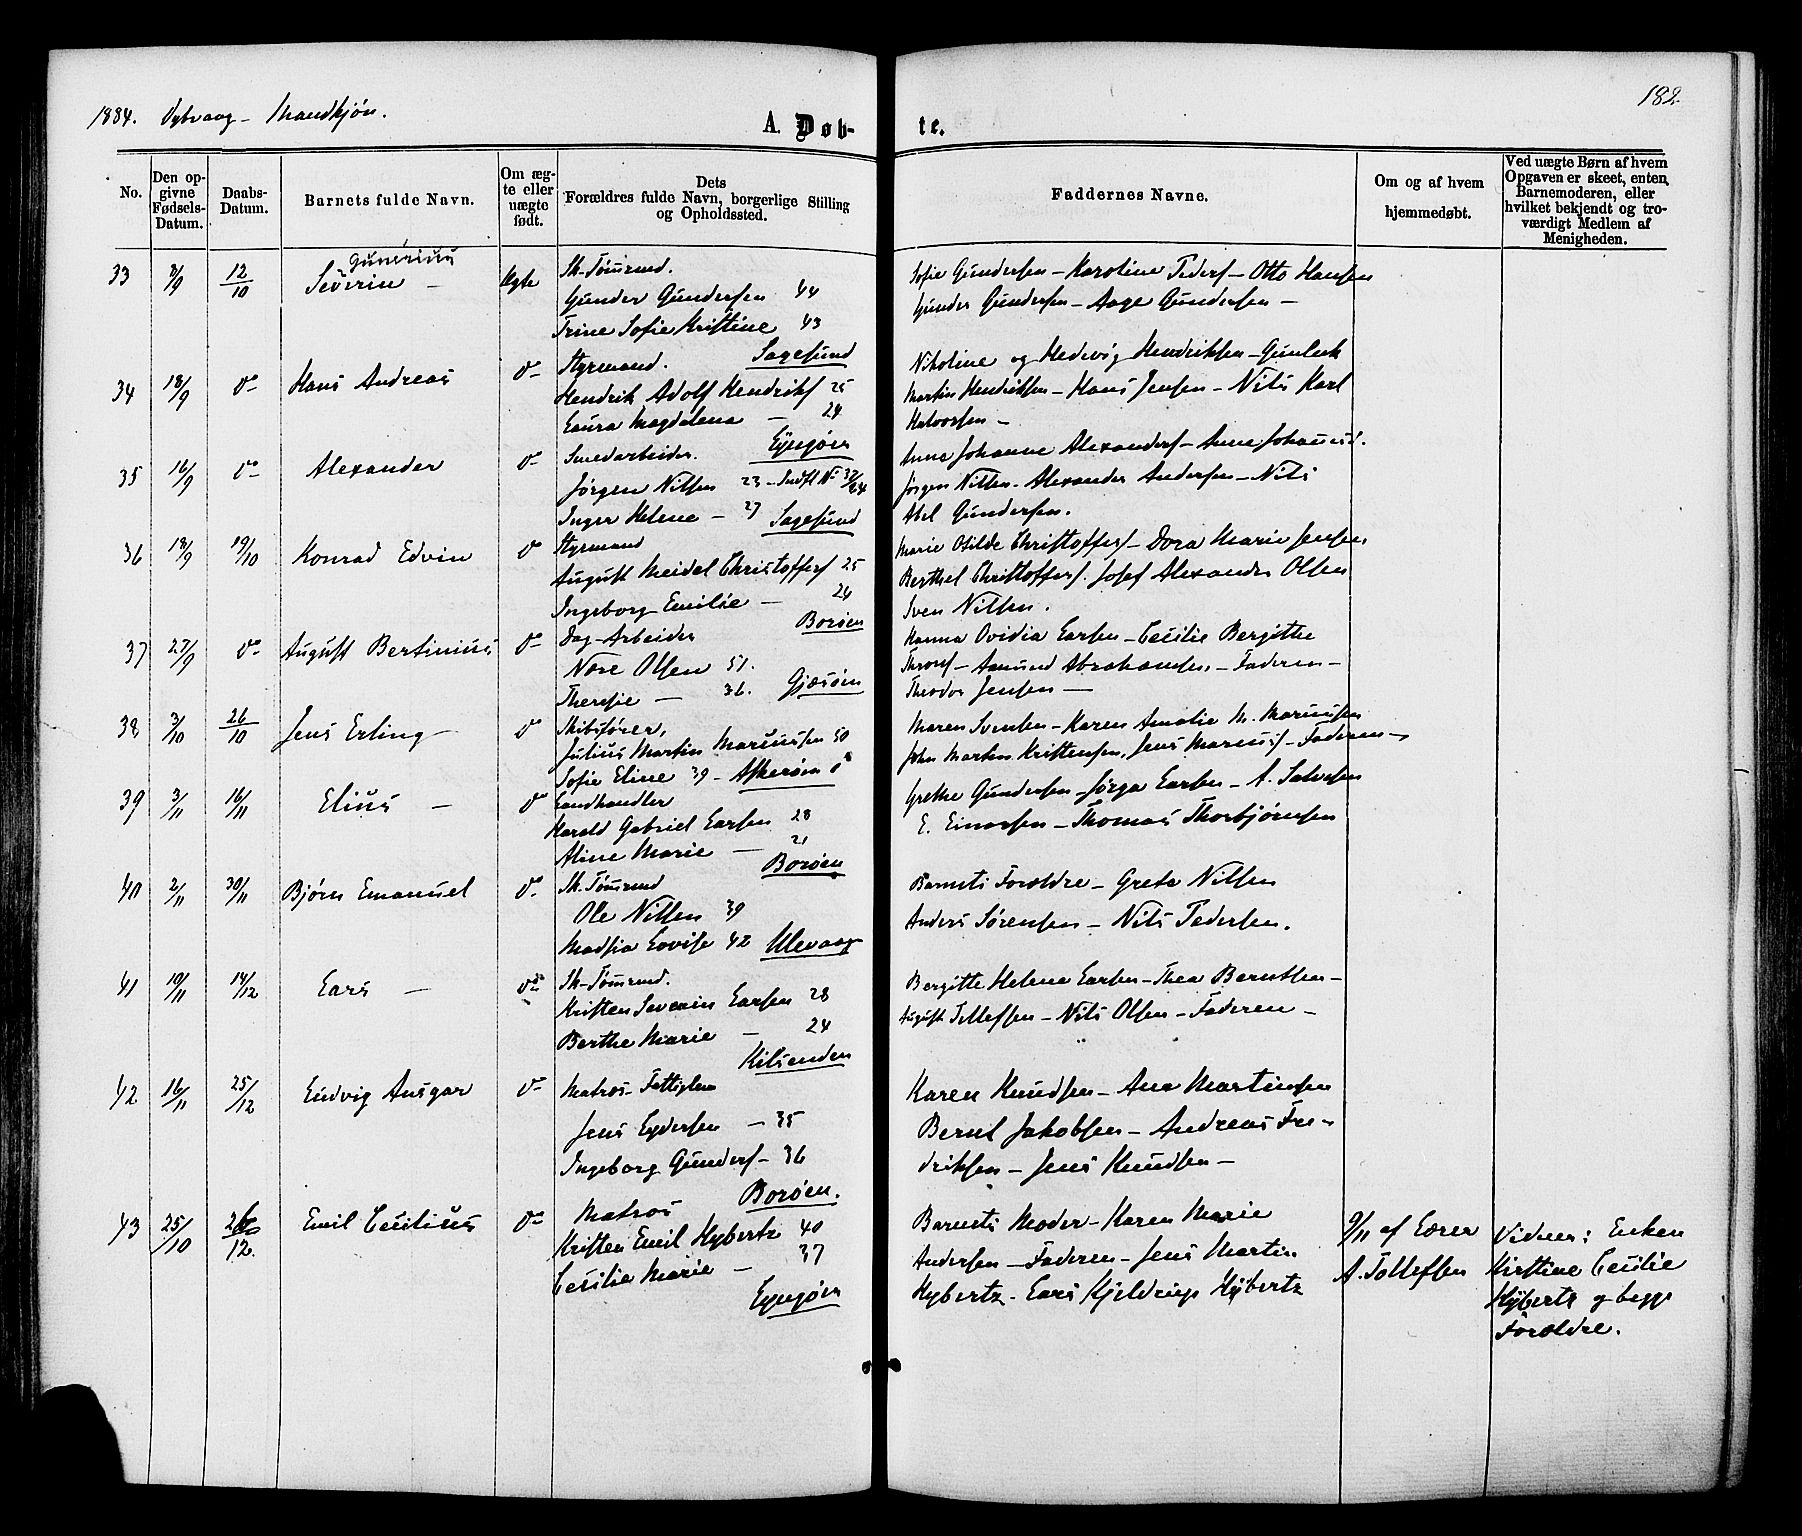 1884. Dybvaag - Mandkjøn.
182.
A. Døb-
te.
No.
Den op-
givne
Fødsels-
Datum.
Daabs-
Datum.
Barnets fulde Navn.
Om æg-
te eller
uægte
født.
Dets
Forældres fulde Navn, borgerlige Stilling
og Opholdssted.
Faddernes Navne.
Om og af hvem
hjemmedøbt.
Ved uægte Børn af hvem
Opgaven er skeet, enten
Barnemoderen, eller
hvilket bekjendt og tro-
værdigt Medlem af
Menigheden.
33 8/9 12/10 Severin Gunerius - Ægte
Sk. Tømmrmd.
Gunder Gundersen 44
Trine Sofie Kristine 43
Sagesund
Sofie Gundersen - Karoline Peders - Otto Hansen
Gunder Gundersen - Aage Gundersen -
34 18/9 do Hans Andreas do
Styrmand.
Hendrik Adolf Hendriks 25
Laura Magdalena - 24
Lyngøer
Nikoline og Hedevig Hendriksen - Gunleik
Martin Hendriksen - Hans Jensen - Nils Karl
Halvorsen -
35 16/9 do Alexander do
Smedarbeider.
Jørgen Nilsen 23 - Indfl No 32/84
Inger Helene - 27
Sagesund
Anna Johanne Alexanders - Anne Johannes.
Jørgen Nilsen - Alexander Andersen - Nils
Abel Gundersen.
36 18/9 19/10 Konrad Edvin do
Styrmand
August Meidel Christoffers 25
Ingeborg Emilie - 24
Borøen
Marie Otilde Christoffers - Dora Marie Jensen,
Berthel Christoffers. Josef Alexander Olsen
Sven Nilsen.
37 27/9 do August Bertinius do
Dag-Arbeider
Nære Olsen 51.
Therese - 36.
Gjæsøen
Hanna Ovidia Larsen - Cecilie Bergitte
Throns - Aamund Abrahamsen - Faderen -
Theodor Jensen -
38 3/10 26/10 Jens Erling - do
Skibsfører,
Julius Martin Mariussen 50
Sofie Eline 39 - Askerøen
Maren Svensen - Karen Amalie M. Mariussen
John Martin Kristensen, Jens Mariuss - Faderen -
39 3/11 16/11 Elius - do
Landhandler
Harald Gabriel Larsen 28
Aline Marie - 21
Borøen
Grethe Gundersen - Jørga Larsen - A. Salvesen
E. Einarsen - Thomas Thorbjørnsen
40 2/11 30/11 Bjørn Emanuel do
Sk. Tømmrmd
Ole Nilsen 39
Madsia Lovise 42 Ulevaag
Barnets Forældre - Grete Nilsen
Anders Sørensen - Nils Pedersen.
41 10/11 14/12 Lars - do
Sk. Tømmrmd.
Kristen Severin Larsen 28
Berthe Marie - 24
Kilsenden
Bergitte Helene Larsen - Thea Berntsen -
August Tellefsen - Nils Olsen - Faderen -
42 16/11 25/12 Ludvig Ansgar do
Matros - Fattiglem
Jens Lydersen - 35
Ingeborg Gunders - 36
Borøen.
Karen Knudsen - Ane Martinsen
Bernt Jakobsen - Andreas Fre-
driksen - Jens Knudsen -
43 25/10 26/12. Emil Cecilius do
Matros
Kristen Emil Hybertz 40
Cecilie Marie - 37
Lyngøer
Barnets Moder - Karen Marie
Andersen - Faderen - Jens Martin
Hybertz - Lars Kjeldrup Hybertz
9/11 af Lærer
A. Tollefsen
Vidner: Enken
Kirstine Cecilie
Hybertz og begge
Forældre.